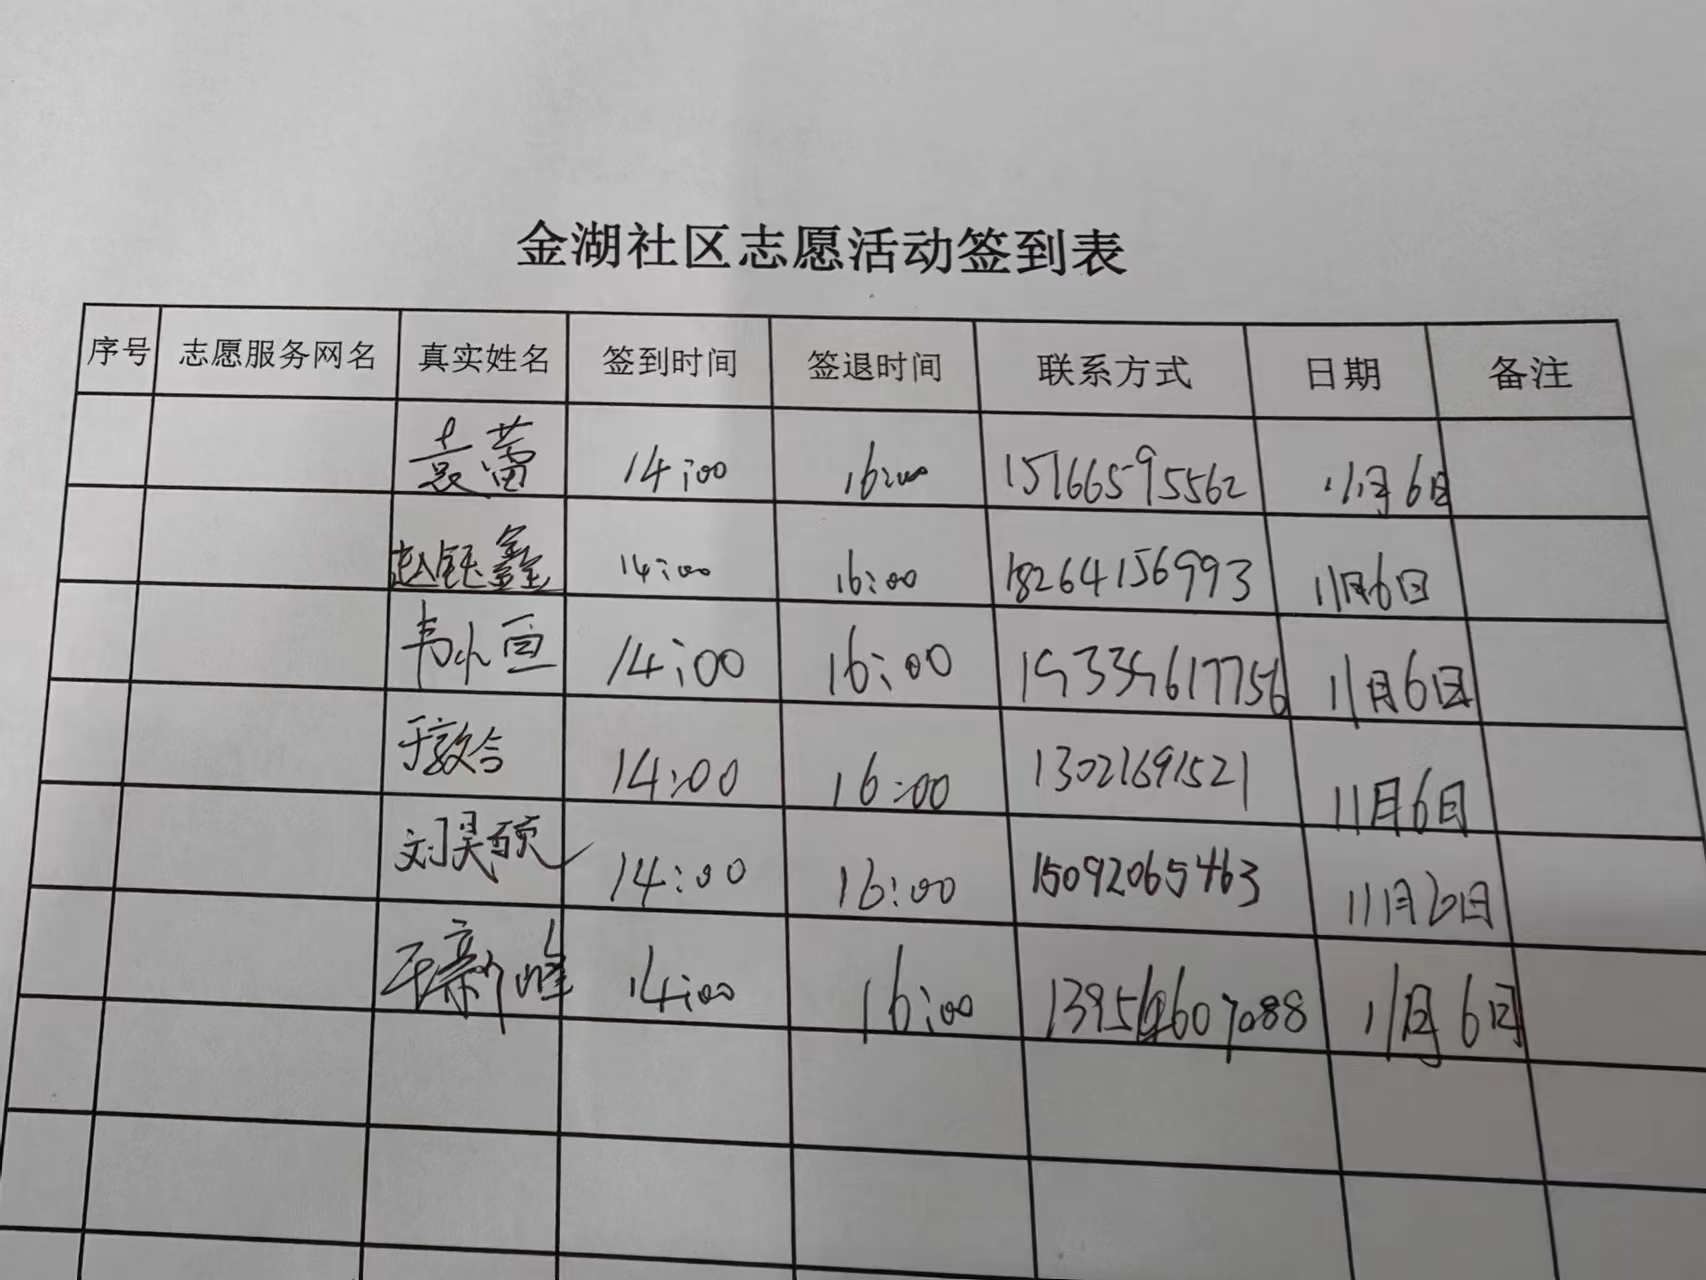 金湖社区志愿活动签到表
序号 志愿服务网名 真实姓名 签到时间 签退时间 联系方式 日期 备注
袁蕾 14:00 16:00 15166595562 11月6日
赵钰鑫 14:00 16:00 18264156993 11月6日
韦小画 14:00 16:00 11月6日
于敦合 14:00 16:00 13021691521 11月6日
刘昊硕 14:00 16:00 15092065463 11月6日
新峰 14:00 16:00 11月6日